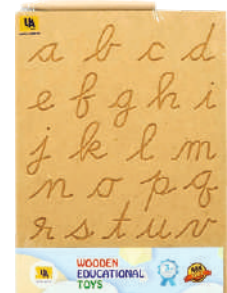 a b c d
e f g h i
j k l m
n o p q
r s t u v
WOODEN
EDUCATIONAL
TOYS